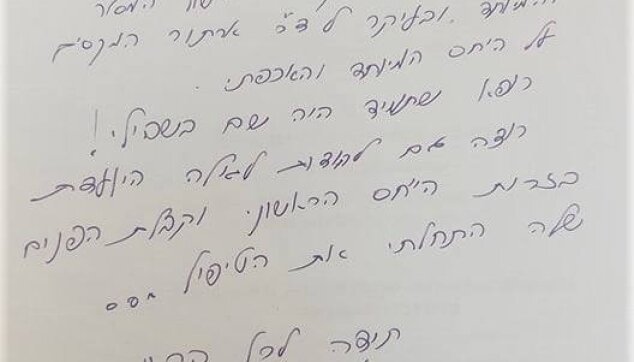 המסור
המיוחד ובעיקר לד"ר ארתור המקסים
על היחס המיוחד והאכפתי.
רופא שתמיד היה שם בשבילי!
רוצה גם להודות לגילה היועדת
בזכות היחס הראשוני וקבלת הפנים
שלה התחלתי את הטיפול ...
תודה לכל